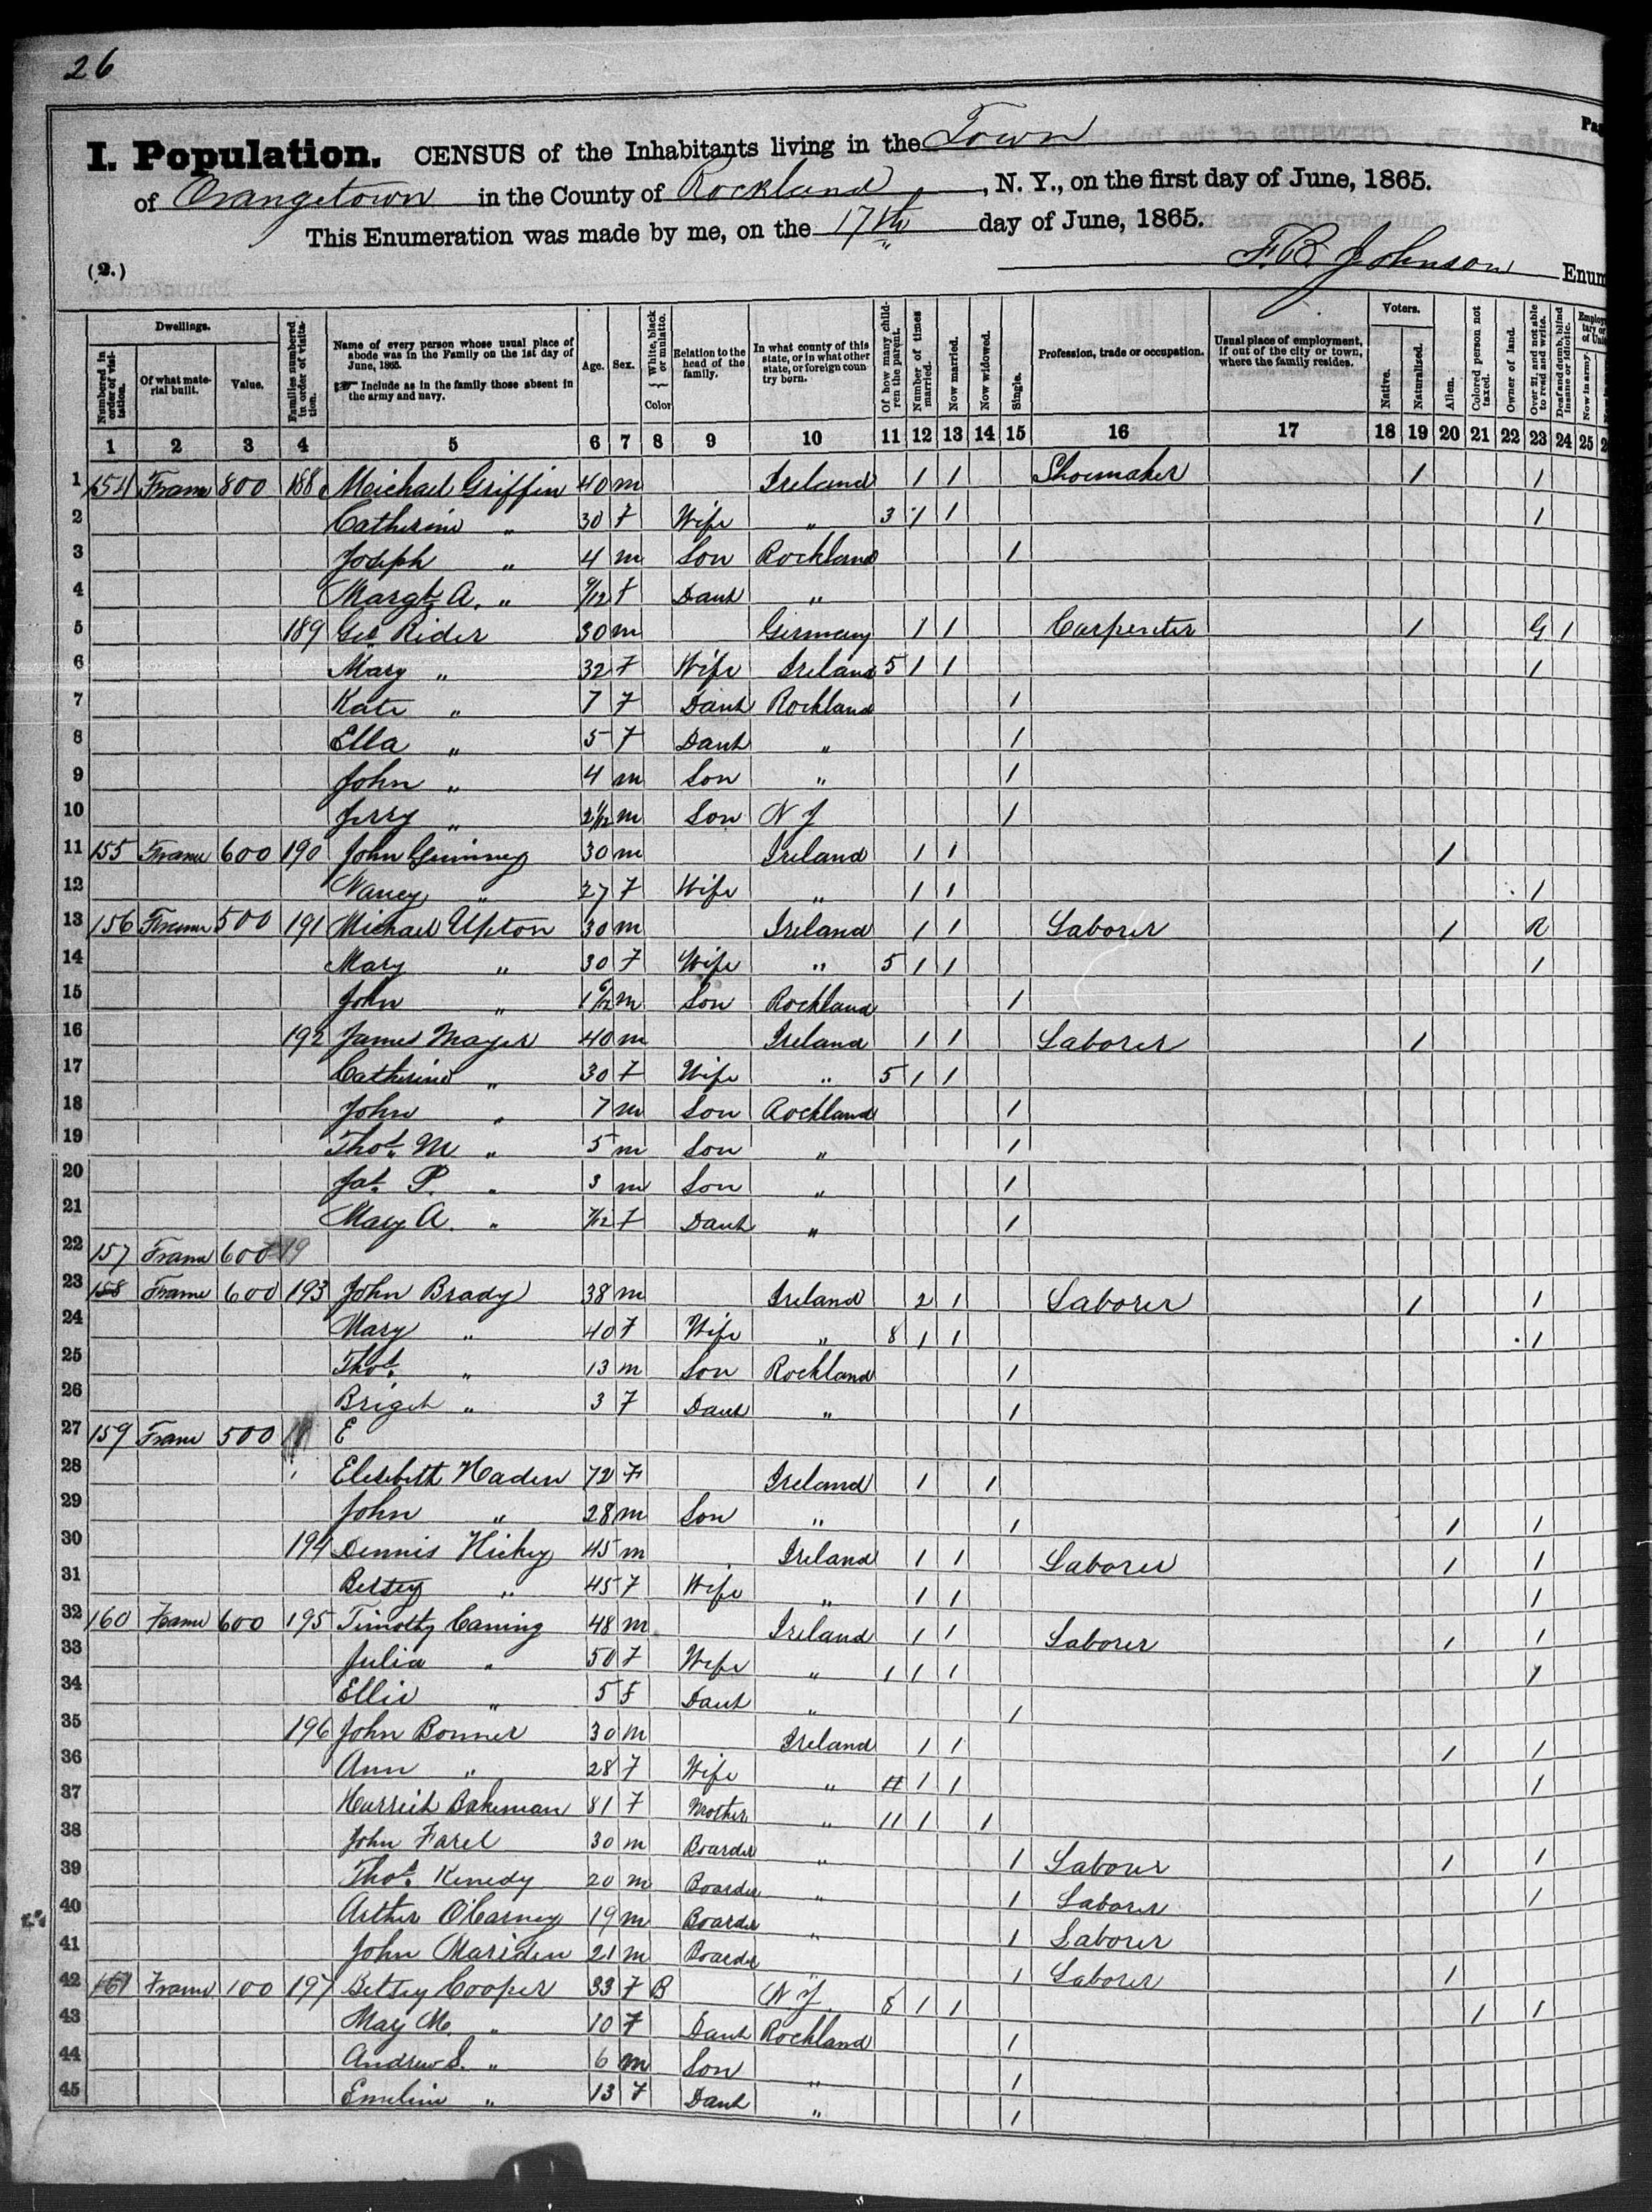 26
Pag
I. Population. CENSUS of the Inhabitants living in the Town
of Orangetown in the County of Rockland, N. Y., on the first day of June, 1865.
This Enumeration was made by me, on the 17th day of June, 1865.
(2.) F. B. Johnson Enum
Dwellings. Voters.
Numbered in order of visitation. Of what material built. Value. Families numbered in order of visitation. Name of every person whose usual place of abode was in the Family on the 1st day of June, 1865. Include as in the family those absent in the army and navy. Age. Sex. White, black or mulatto. Color Relation to the head of the family. In what county of this state, or in what other state, or foreign country born. Of how many children the parent. Number of times married. Now married. Now widowed. Single. Profession, trade or occupation. Usual place of employment, if out of the city or town, where the family resides. Native. Naturalized. Alien. Colored person not taxed. Owner of land. Over 21, and not able to read and write. Deaf and dumb, blind insane or idiotic. Now in army.
1 2 3 4 5 6 7 8 9 10 11 12 13 14 15 16 17 18 19 20 21 22 23 24 25 2
1 154 Frame 800 188 Meichael Griffin 40 m Ireland 1 1 Shoemaker 1 1
2 Catherine " 30 F Wife " 3 1 1 1
3 Joseph " 4 m Son Rockland 1
4 Margt A. " 9/12 f Daut "
5 189 Geo Rider 30 m Germany 1 1 Carpenter 1 G 1
6 Mary " 32 F Wife Ireland 5 1 1 1
7 Kate " 7 F Daut Rockland 1
8 Ella " 5 F Daut " 1
9 John " 4 m Son " 1
10 Jerry " 2 1/12 m Son N J 1
11 155 Frame 600 190 John 30 m Ireland 1 1 1
12 Nancy " 27 F Wife " 1 1 1
13 156 Frame 500 191 Michael Upton 30 m Ireland 1 1 Laborer 1 R
14 Mary " 30 F Wife " 5 1 1 1
15 John " 1 6/12 m Son Rockland 1
16 192 James Mayer 40 m Ireland 1 1 Laborer 1
17 Catherine " 30 F Wife " 5 1 1
18 John " 7 m Son Rockland 1
19 Thos. M " 5 m Son " 1
20 Jas. P. " 3 m Son " 1
21 Mary A. " 7/12 F Daut " 1
22 157 Frame 600 19
23 158 Frame 600 193 John Brady 38 m Ireland 2 1 Laborer 1 1
24 Mary " 40 F Wife " 8 1 1 1
25 Thos. " 13 m Son Rockland 1
26 Briget " 3 F Daut " 1
27 159 Frame 500 E
28 Elesebeth Haden 72 F Ireland 1 1
29 John " 28 m Son " 1 1 1
30 194 Dennis Hickey 45 m Ireland 1 1 Laborer 1 1
31 Betsey " 45 F Wife " 1 1 1
32 160 Frame 600 195 Timothy Caning 48 m Ireland 1 1 Laborer 1 1
33 Julia " 50 F Wife " 1 1 1 1
34 Ellie " 5 F Daut " 1
35 196 John Bonner 30 m Ireland 1 1 1 1
36 Ann " 28 F Wife " 11 1 1 1
37 Harrieh Bakeman 81 F Mother " 11 1 1
38 John Farel 30 m Boarder " 1 Laborer 1 1
39 Thos. Kenedy 20 m Boarder " 1 Laborer 1
40 Arther O'Carney 19 m Boarder " 1 Laborer
41 John Mariden 21 m Boarder 1 Laborer 1
42 161 Frame 100 197 Betsey Cooper 33 F B N J. 8 1 1 1 1
43 Mary M. " 10 F Daut Rockland 1
44 Andrew S. " 6 m Son " 1
45 Emeline " 13 F Daut " 1